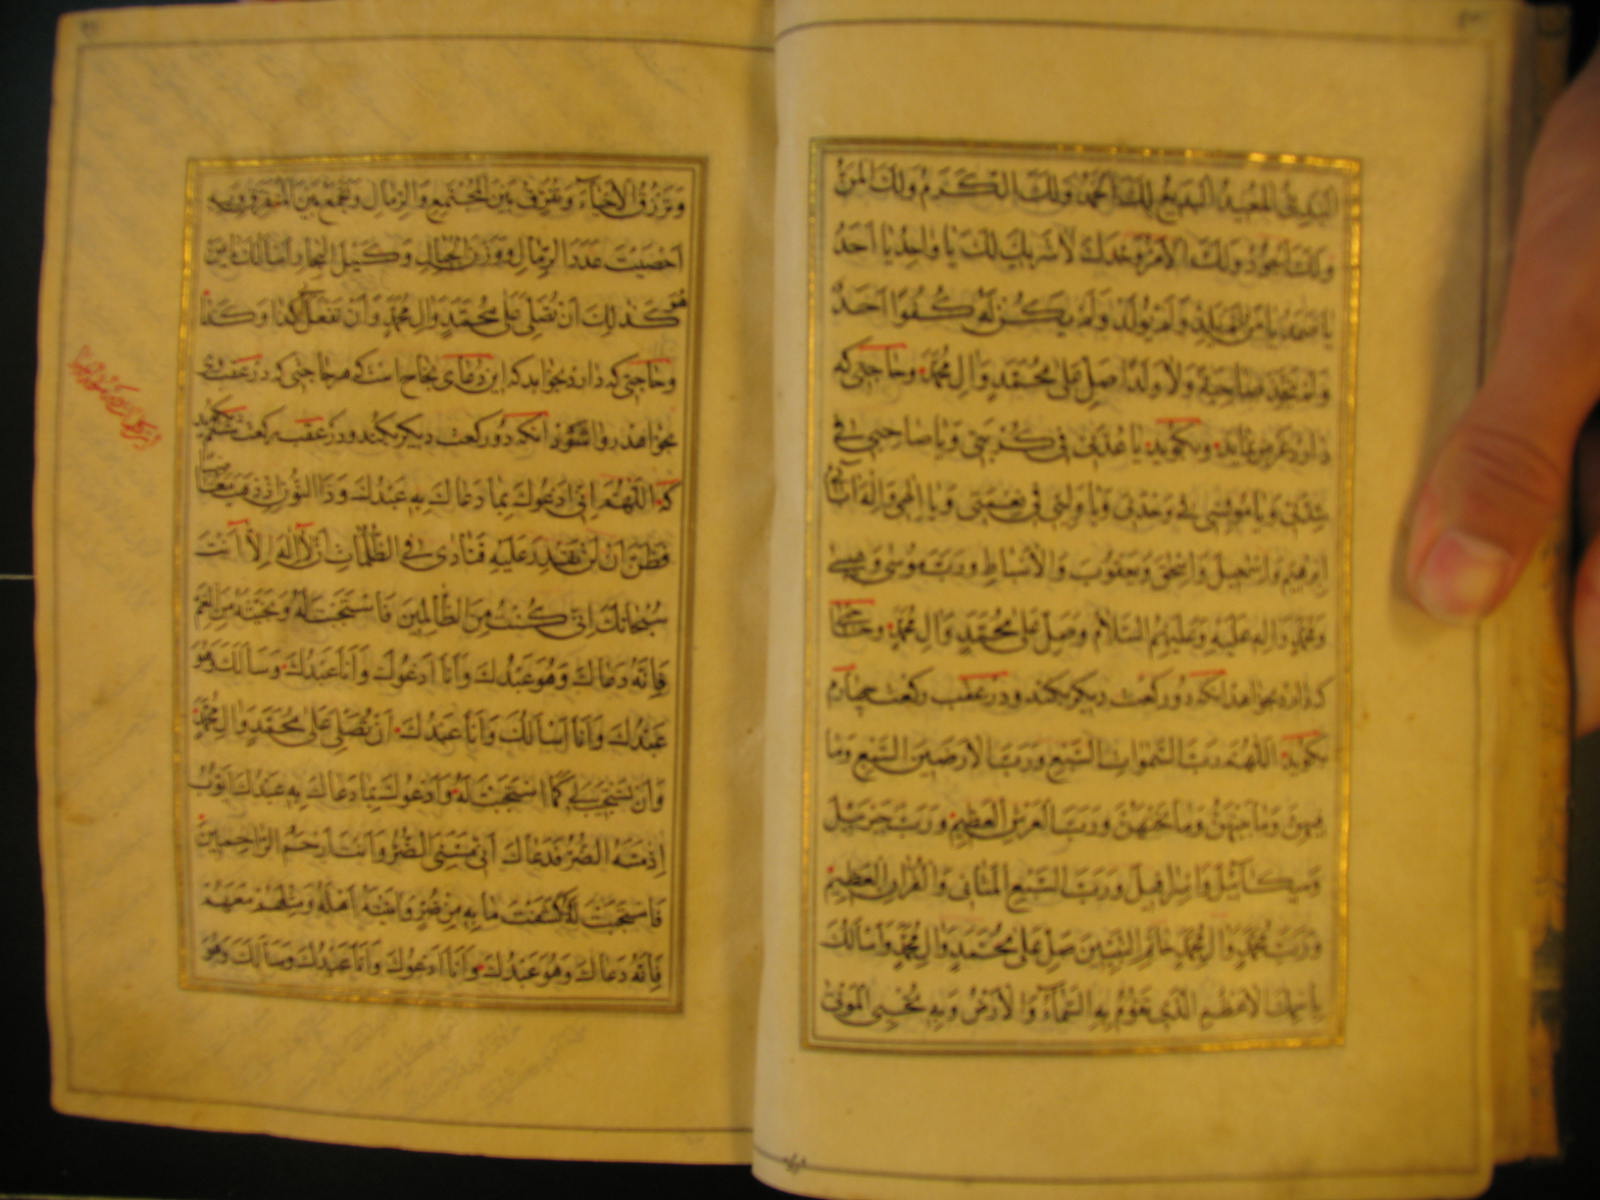 البديع لك الحمد ولك الكرم ولك المن
ولك الجود ولك الامر وحدك لا شريك لك يا واحد يا احد
يا صمد يا من لم يلد ولم يولد ولم يكن له كفوا احد
ولم يتخذ صاحبة ولا ولدا صل على محمد وال محمد وحاجتی که
دارد عرض نماید وبگوید يا عدتي في كربتي ويا صاحبي في
شدتي ويا مونسي في وحدتي ويا وليي في نعمتي ويا الهي واله آبائي
ابرهيم واسمعيل واسحق ويعقوب والاسباط ورب موسى وعيسى
ومحمد واله عليه وعليهم السلام وصل على محمد وال محمد وحاجتی
که دارد بخواهد آنکه دو رکعت دیگر بکند ودر عقب رکعت چهارم
بگوید اللهم رب السموات السبع ورب الارضين السبع وما
فيهن وما بينهن وما تحتهن ورب العرش العظيم ورب جبرئيل
وميكائيل واسرافيل ورب السبع المثاني والقران العظيم
ورب محمد وال محمد خاتم النبيين صل على محمد وال محمد واسالك
باسمك الاعظم الذي تقوم به السماء والارض وبه تحيي الموتى
وترزق الاحياء وتفرق بين المجتمع وتجمع بين المتفرق وبه
احصيت عدد الرمال ووزن الجبال وكيل البحار اسالك يا من
هو كذلك ان تصلي على محمد وال محمد وان تفعل بي كذا وكذا
وحاجتی که دارد بخواهد که این دعای نجاح است که هر حاجتی که در عقب وی
بخواهد روا شود آنکه دو رکعت دیگر بکند ودر عقب رکعت ششم بگوید
که اللهم اني ادعوك بما دعاك به عبدك وذا النون اذ ذهب مغاضبا
فظن ان لن تقدر عليه فنادى في الظلمات ان لا اله الا انت
سبحانك اني كنت من الظالمين فاستجبت له ونجيته من الغم
فانه دعاك وهو عبدك وانا ادعوك وانا عبدك وسالك وهو
عبدك وانا اسالك وانا عبدك ان تصلي على محمد وال محمد
وان تستجيب لي كما استجبت له وادعوك بما دعاك به عبدك ايوب
اذ مسه الضر فدعاك اني مسني الضر وانت ارحم الراحمين
فاستجبت له وكشفت ما به من ضر واتيته اهله ومثلهم معهم
فانه دعاك وهو عبدك وانا ادعوك وانا عبدك وسالك وهو